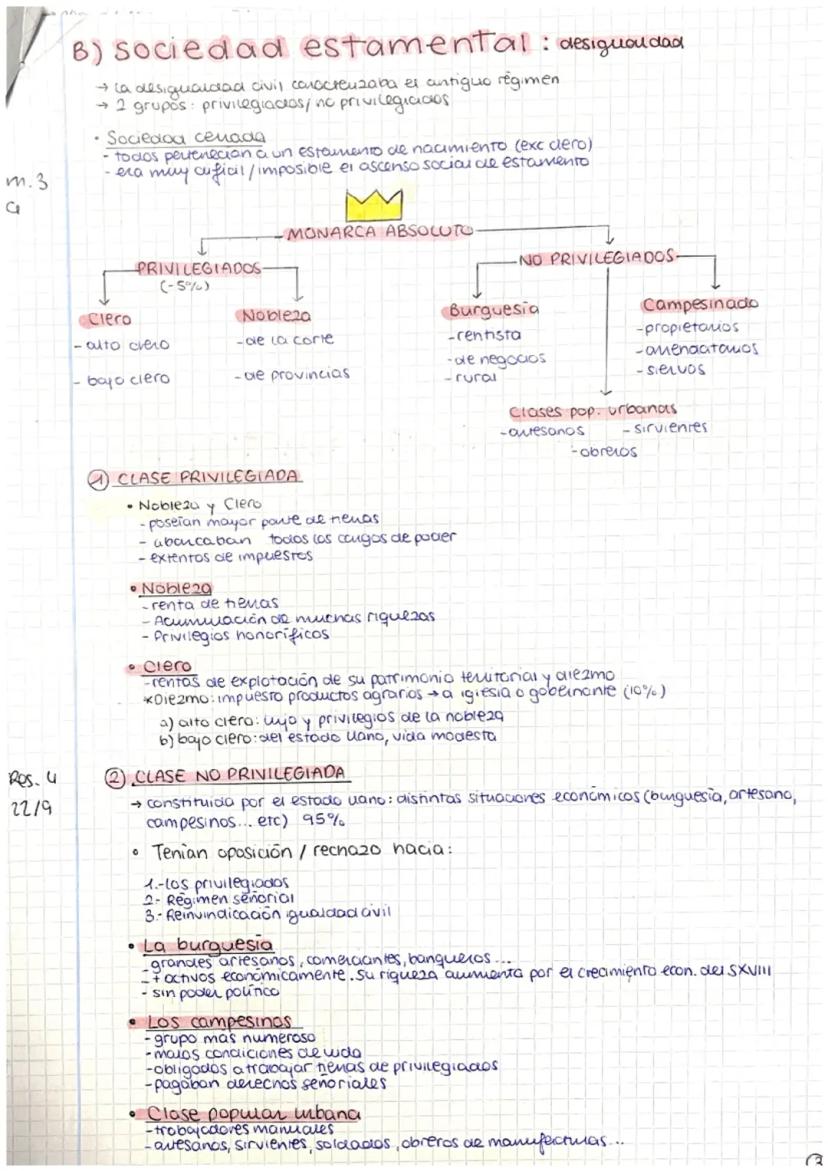 B) sociedad estamental : desigualdad
→ La desigualdad civil caracterizaba el antiguo régimen
→ 2 grupos: privilegiados/no privilegiados
• Sociedad cerrada
- todos pertenecían a un estamento de nacimiento (exc clero)
- era muy dificil/imposible el ascenso social de estamento
m. 3
MONARCA ABSOLUTO
PRIVILEGIADOS
(-5%)
NO PRIVILEGIADOS
Clero
- alto clero
- bajo clero
Nobleza
- de la corte
- de provincias
Burguesía
- rentista
- de negocios
- rural
Campesinado
- propietarios
- arrendatarios
- siervos
Clases pop. urbanas
- artesanos - sirvientes
- obreros
① CLASE PRIVILEGIADA
• Nobleza y Clero
- poseían mayor parte de tierras
- abarcaban todos los cargos de poder
- extentos de impuestos
• Nobleza
- renta de tierras
- Acumulación de muchas riquezas
- Privilegios honoríficos
• Clero
- rentas de explotación de su patrimonio territorial y diezmo
*Diezmo: impuesto productos agrarios → a iglesia o gobernante (10%)
a) alto clero: lujo y privilegios de la nobleza
b) bajo clero: del estado llano, vida modesta
Res. 4
22/9
② CLASE NO PRIVILEGIADA
→ constituida por el estado llano: distintas situaciones económicos (burguesía, artesano,
campesinos... etc) 95%
• Tenían oposición / rechazo hacia:
1.- los privilegiados
2- Régimen señorial
3.- Reinvindicación igualdad civil
• La burguesía
- grandes artesanos, comerciantes, banqueros...
- + activos económicamente. Su riqueza aumenta por el crecimiento econ. del SXVIII
- sin poder político
• Los campesinos
- grupo más numeroso
- malas condiciones de vida
- obligados a trabajar tierras de privilegiados
- pagaban derechos señoriales
• Clase popular urbana
- trabajadores manuales
- artesanos, sirvientes, soldados, obreros de manufacturas...